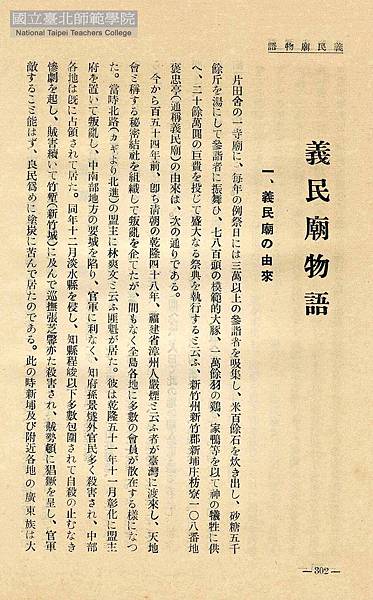 國立臺北師範學院
National Taipei Teachers College
義民廟物語
義民廟物語
一、義民廟の由來
片田舍の一寺廟に、每年の例祭日には三萬以上の參詣者を吸集し、米百餘石を炊き出し、砂糖五千
餘斤を湯にして參詣者に振舞ひ、七八百頭の模範的大豚、一萬餘羽の鷄、家鴨等を以て神の犧牲に供
へ、二十餘萬圓の巨費を投じて盛大なる祭典を執行すると云ふ、新竹州新竹郡新埔庄枋寮一〇八番地
褒忠亭(通稱義民廟)の由來は、次の通りである。
今から百五十四年前、卽ち淸朝の乾隆四十八年、福建省漳州人嚴烟と云ふ者が臺灣に渡來し、天地
會と稱する秘密結社を組織して叛亂を企てたが、間もなく全島各地に多數の會員が散在する樣になつ
た。當時北路(カギより北進)の盟主に林爽文と云ふ匪魁が居た。彼は乾隆五十一年十一月彰化に盟主
府を置いて叛亂し、中南部地方の要城を陷り、官軍に利なく、知府孫景燧外官民多く殺害され、中部
各地は旣に占領されて居た。同年十二月淡水縣を侵し、知縣程峻以下多數包圍されて自殺の止むなき
慘劇を起し、賊害續いて竹塹(新竹城)に及んで巡撫張芝馨亦た殺害され、賊勢頓に猖獗を呈し、官軍
敵すること能はず、良民爲めに塗炭に苦んで居たのである。此の時新埔及び附近各地の廣東族は大
—302—